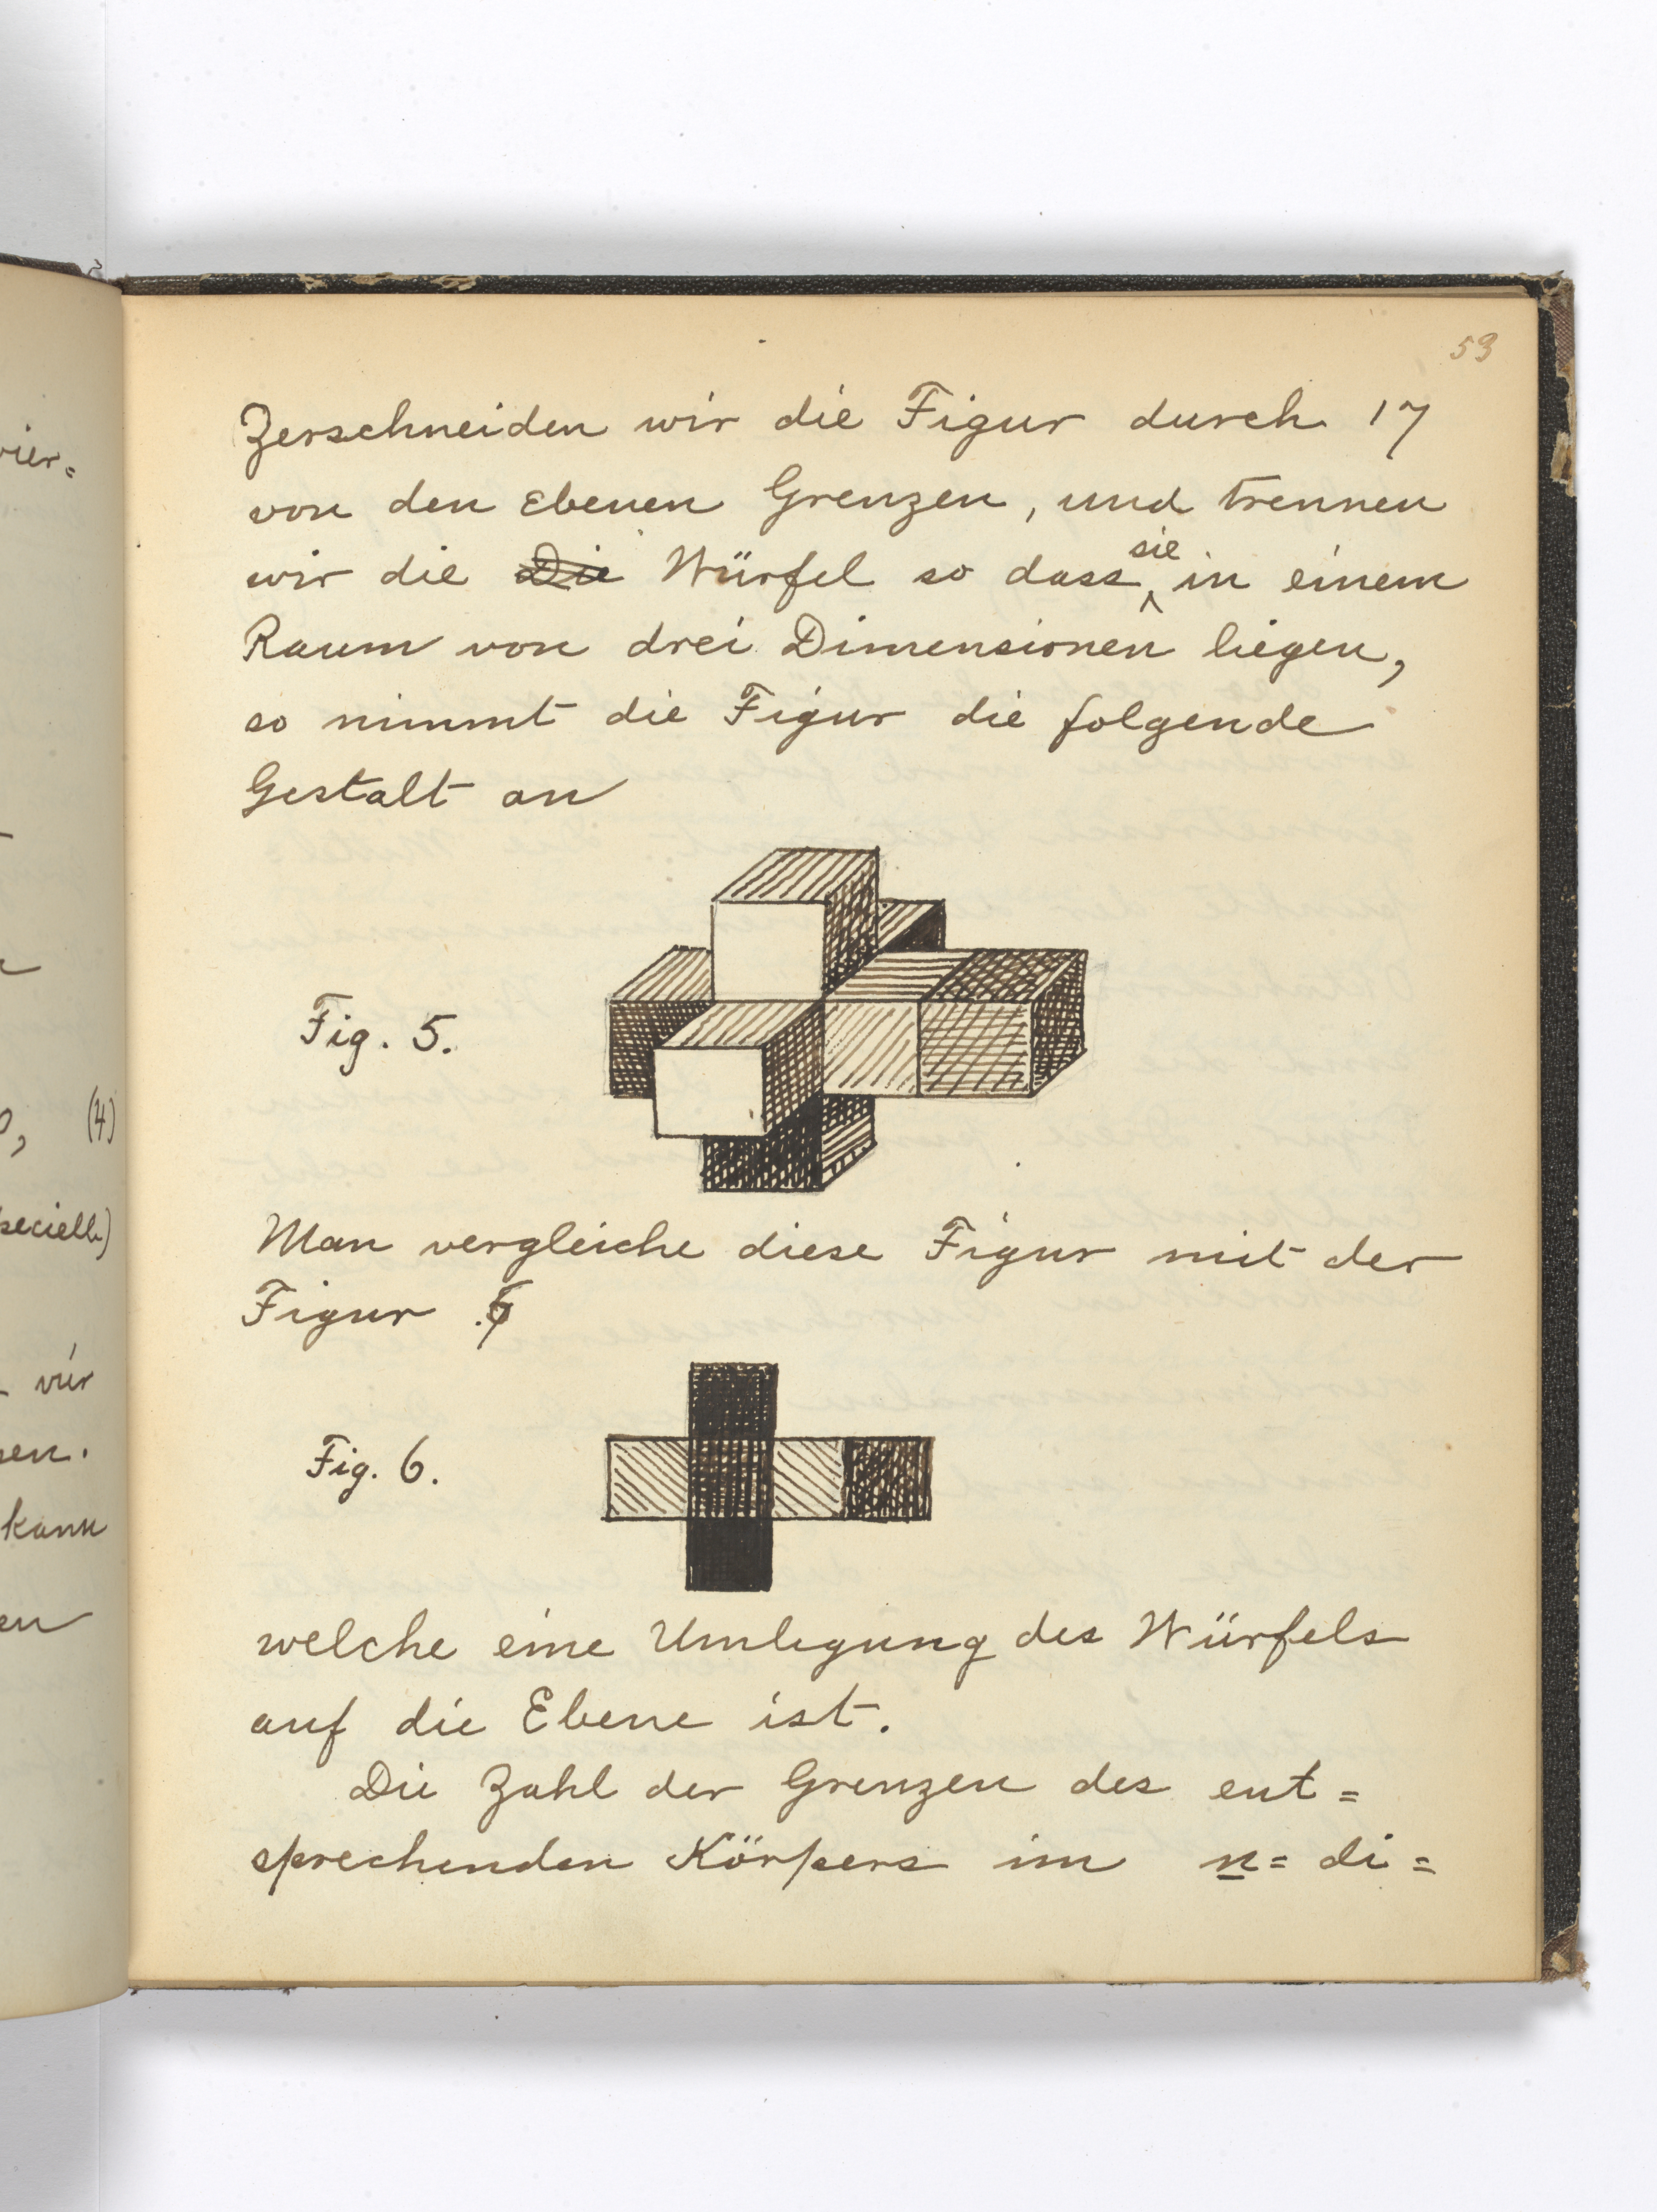 vier=
(4)
vier
kann
53
Zerschneiden wir die Figur durch 17
von den Ebenen Grenzen, und trennen
wir die Die Würfel so dass sie in einem
Raum von drei Dimensionen liegen,
so nimmt die Figur die folgende
Gestalt an
Fig. 5.
Man vergleiche diese Figur mit der
Figur 6
Fig. 6.
welche eine Umlegung des Würfels
auf die Ebene ist.
Die Zahl der Grenzen des ent=
sprechenden Körpers im n= di=